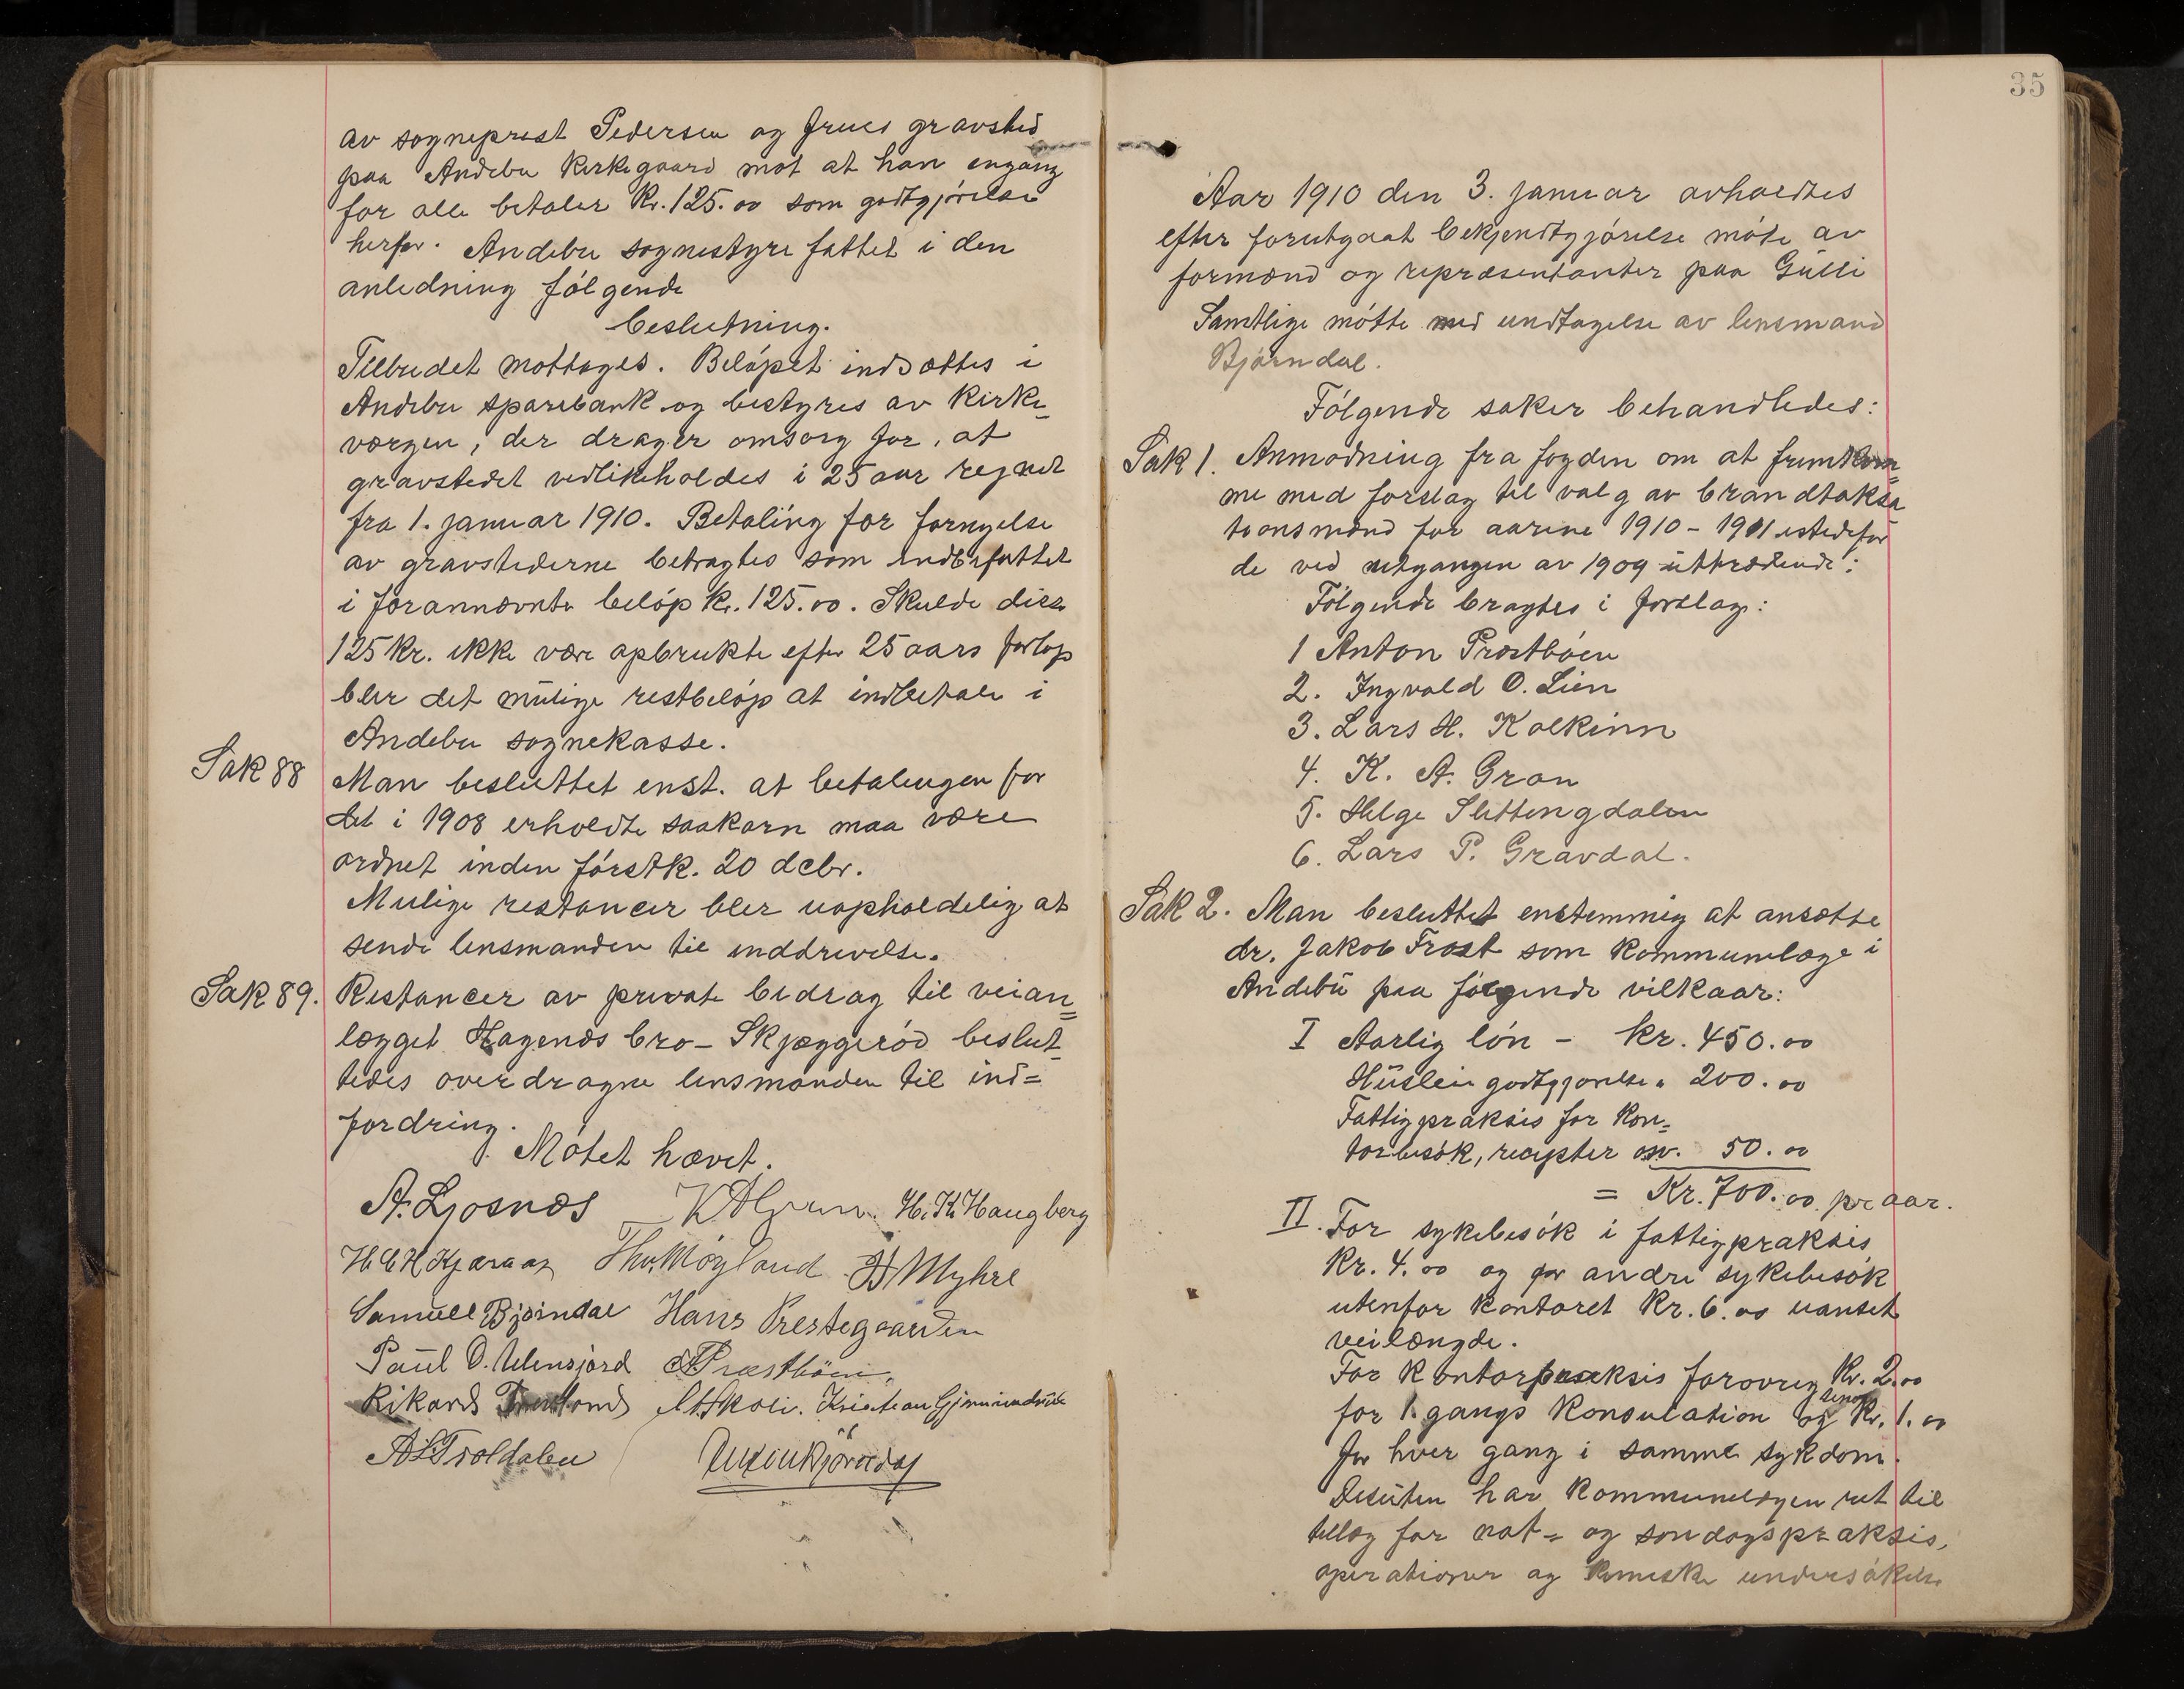 av sogneprest Pedersen og frues gravsted
paa Andebu kirkegaard mot at han engang
for alle betaler kr. 125.00 som godtgjörelse
herfor. Andebu sognestyre fattet i den
anledning fölgende
beslutning.
Tilbudet mottages. Belöpet indsættes i
Andebu sparebank og bestyres av kirke-
værgen, der drager omsorg for, at
gravstedet vedlikeholdes i 25 aar regnet
fra 1. januar 1910. Betaling for fornyelse
av gravstederne betragtes som indbefattet
i forannævnte belöp kr. 125.00. Skulde disse
125 kr. ikke være opbrukte efter 25 aars forløp
blir det mulige restbeløp at indbetale i
Andebu sognekasse.
Sak 88 Man besluttet enst. at betalingen for
det i 1908 erholdte saakorn maa være
ordnet inden förstk. 20 debr.
Mulige restancer bler uopholdelig at
sende lensmanden til inddrivelse.
Sak 89. Restancer av private bidrag til veian=
lægget Hagenæs bro - Skjæggeröd beslut-
tedes overdragne lensmanden til ind=
fordring.
Mötet hævet.
A. Ljosnæs H. K. Haugberg
Thv. Møyland Myhre
Samuel Bjørndal Hans Prestegaarden
Paul O. Ulensjord A Præstbøen
Rikard A. Skoli. Kristian
A L Troldalen
35
Aar 1910 den 3. januar avholdtes
efter forutgaat bekjendtgjörelse möte av
formænd og repræsentanter paa Gulli
Samtlige mötte med undtagelse av lensmand
Bjørndal.
Fölgende saker behandledes:
Sak 1. Anmodning fra fogden om at fremkom=
me med forslag til valg av brandtaksa-
tionsmænd for aarene 1910 - 1911 istedefor
de ved utgangen av 1909 uttrædende:
Fölgende bragtes i forslag:
1 Anton Præstböen
2. Ingvald O. Lien
3. Lars H. Kolkinn
4. K. A. Gran
5. Helge Slettingdalen
6. Lars P. Gravdal.
Sak 2. Man besluttet enstemmig at ansætte
dr. Jakob Frost som kommunelæge i
Andebu paa følgende vilkaar:
I Aarlig lön - kr. 450.00
Husleiegodtgjørelse " 200.00
Fattigpraksis for kon=
torbesök, recepter osv. 50.00
= Kr. 700.00 pr aar.
II. For sykebesök i fattigpraksis
kr. 4.00 og for andre sykebesök
utenfor kontoret kr. 6.00 uanset
veilængde.
For kontorpraksis forøvrig kr. 2.00
for 1. gangs konsulation og senere kr. 1.00
for hver gang i samme sykdom.
Desuten har kommunelægen ret til
tillæg for nat- og søndagspraksis,
operationer og kemiske undersøkelse